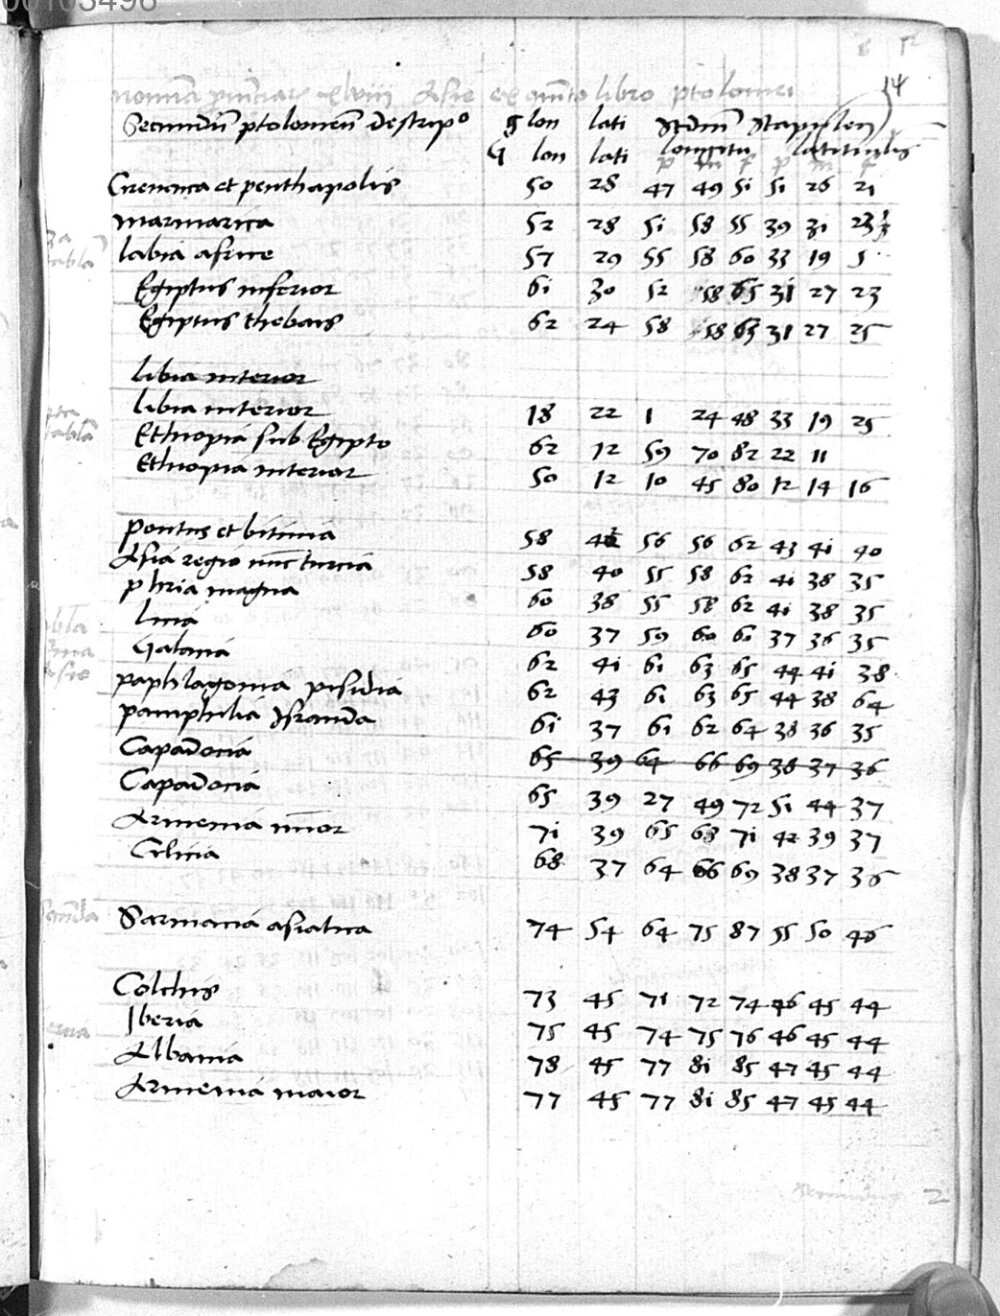 00103496
14
nomina xlviii Asie ex libro ptolomei
Secundũ ptolomeũ descripº g lon lati Scdm Stapulen
G lon lati longitu latitudis
p m f p m f
Cirenaica et penthapolis 50 28 47 49 51 51 26 21
marmarica 52 28 51 58 55 39 31 23
labia africe 57 29 55 58 60 33 19 5
Egiptus inferior 61 30 52 58 65 31 27 23
Egiptus thebais 62 24 58 58 63 31 27 25
libia interior
libia interior 18 22 1 24 48 33 19 25
Ethiopia sub Egipto 62 12 59 70 82 22 11
Ethiopia interior 50 12 10 45 80 12 14 16
pontus et bitinia 58 56 56 62 43 41 40
Asia regio nũc turcia 58 40 55 58 62 41 38 35
phria magna 60 38 55 58 62 41 38 35
licia 60 37 59 60 61 37 36 35
Galacia 62 41 61 63 65 44 41 38
paphlagonia pisidia 62 43 61 63 65 44 38 64
pamphilia 61 37 61 62 64 38 36 35
Capadocia 65 39 64 66 69 38 37 36
Capadocia 65 39 27 49 72 51 44 37
Armenia minor 71 39 65 68 71 42 39 37
Cilicia 68 37 64 66 69 38 37 36
Sarmacia asiatica 74 54 64 75 87 55 50 46
Colchis 73 45 71 72 74 46 45 44
Iberia 75 45 74 75 76 46 45 44
Albania 78 45 77 81 85 47 45 44
Armenia maior 77 45 77 81 85 47 45 44
2